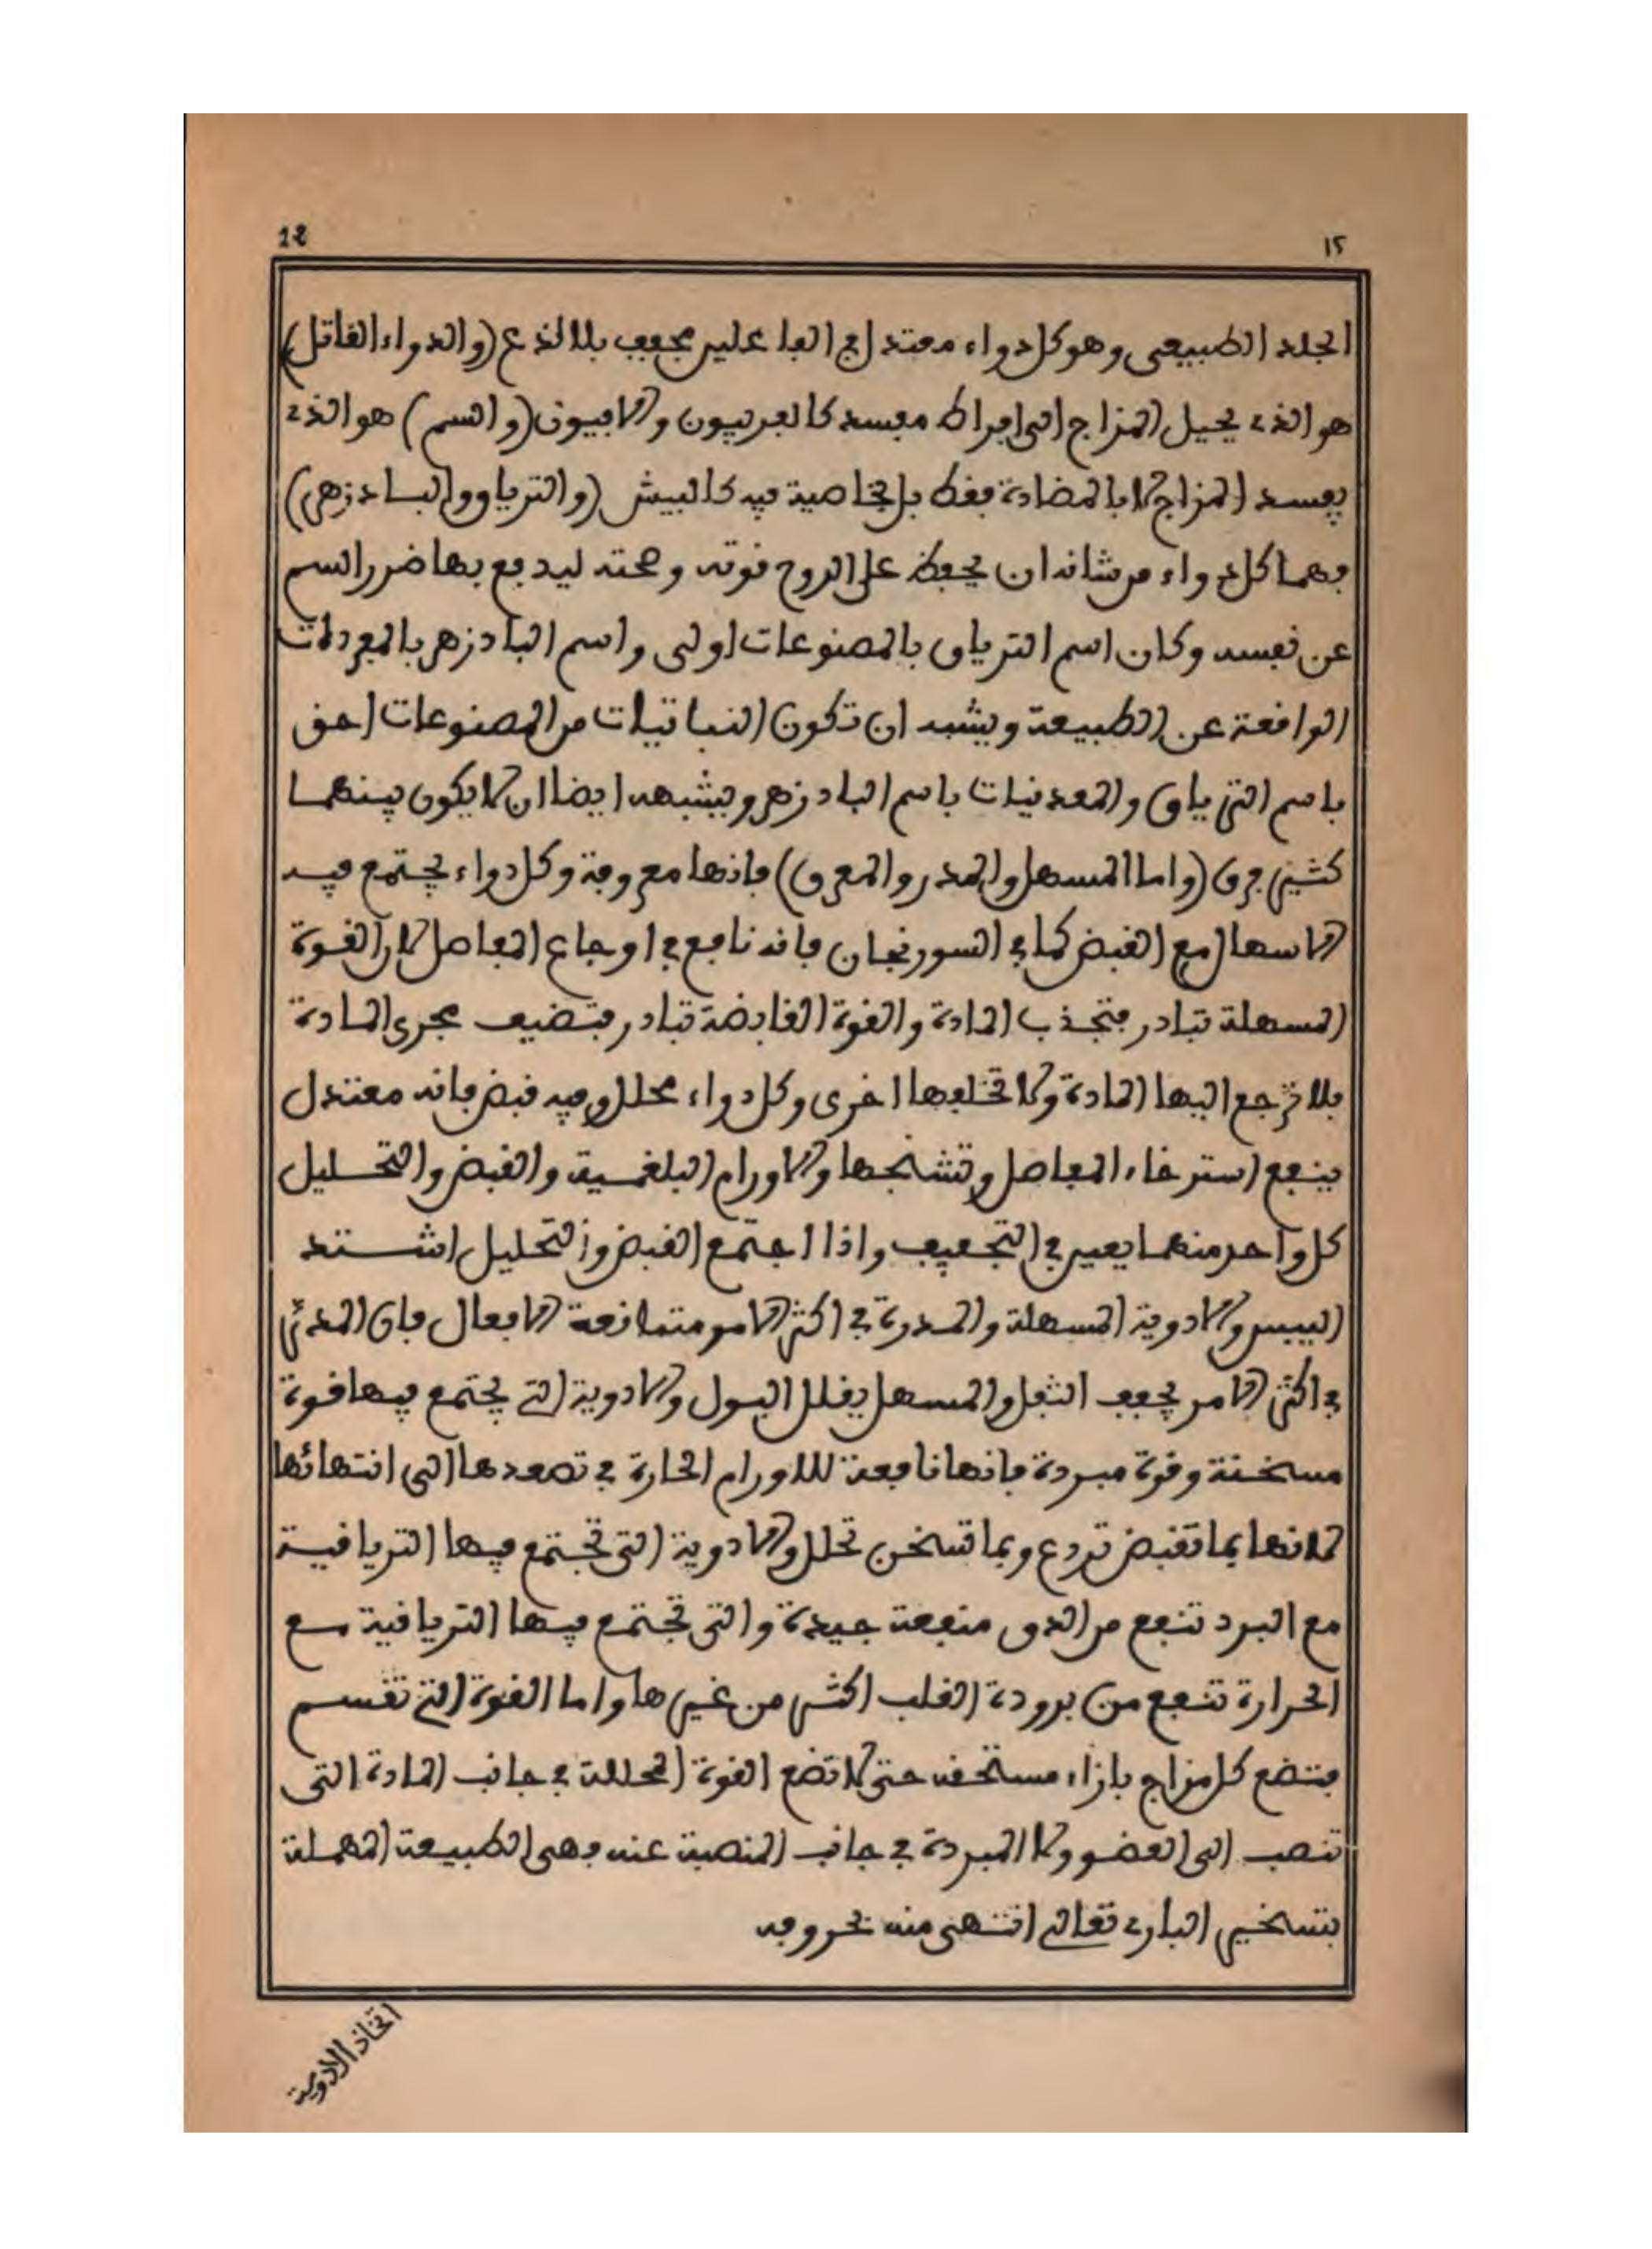 12 ١٢
الجلد الطبيعى وهو كل دواء معتدل في الفاعلين مجفف بلا لذع (والدواء القاتل)
هو الذي يحيل المزاج الى افراط مفسد كالفربيون والافيون (والسم) هو الذي
يفسد المزاج لا بالمضادة فقط بل بخاصية فيه كالبيش (والترياق والبادزهر)
فهما كل دواء من شانه ان يحفظ على الروح قوته وصحته ليدفع بها ضرر السم
عن نفسه وكان اسم الترياق بالمصنوعات اولى واسم البادزهر بالمفردات
الواقعة عن الطبيعة ويشبه ان تكون النباتيات من المصنوعات احق
باسم الترياق والمعدنيات باسم البادزهر ويشبه ايضا ان لا يكون بينهما
كثير فرق (واما المسهل والمدر والمعرق) فانها معروفة وكل دواء يجتمع فيه
الاسهال مع القبض كما في السورنجان فانه نافع في اوجاع المفاصل لان القوة
المسهلة تبادر فتجذب المادة والقوة القابضة تبادر فتضيف مجرى المادة
فلا ترجع اليها المادة ولا تخلفها اخرى وكل دواء محلل وفيه قبض فانه معتدل
ينفع استرخاء المفاصل وتشنجها والاورام البلغمية والقبض والتحليل
كل واحد منهما يعين في التجفيف واذا اجتمع القبض والتحليل اشتد
اليبس والادوية المسهلة والمدرة في اكثر الامر متمانعة الافعال فان المدر
في اكثر الامر يجفف الثفل والمسهل يقلل البول والادوية التي يجتمع فيها قوة
مسخنة وقوة مبردة فانها نافعة للاورام الحارة في تصعدها الى انتهائها
لانها بما تقبض تردع وبما تسخن تحلل والادوية التى تجتمع فيها الترياقية
مع البرد تنفع من الدق منفعة جيدة والتى تجتمع فيها الترياقية مع
الحرارة تنفع من برودة القلب اكثر من غيرها واما القوة التي تقسم
فتضع كل مزاج بازاء مستحقه حتى لا تضع القوة المحللة في جانب المادة التى
تنصب الى العضو ولا المبردة في جانب المنصبة عنه فهى الطبيعة الملهمة
بتسخير البارى تعالى انتهى منه بحروفه
اتخاذ الادوية